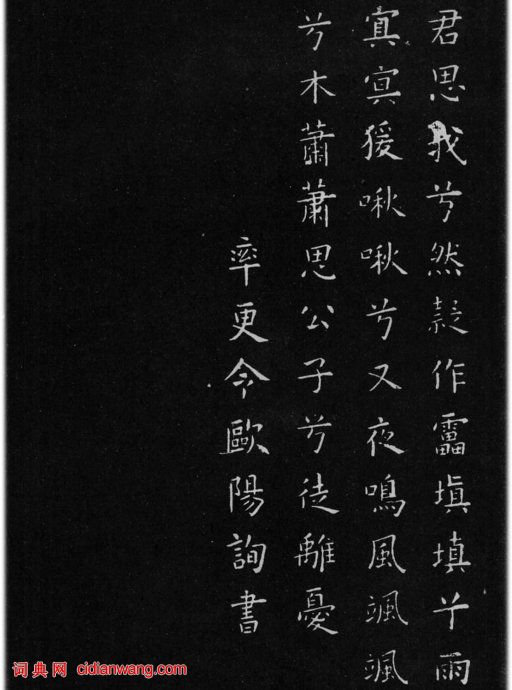 君思我兮然疑作靁填填兮雨
冥冥猨啾啾兮又夜鳴風颯颯
兮木蕭蕭思公子兮徒離憂
率更令歐陽詢書
词典网 cidianwang.com